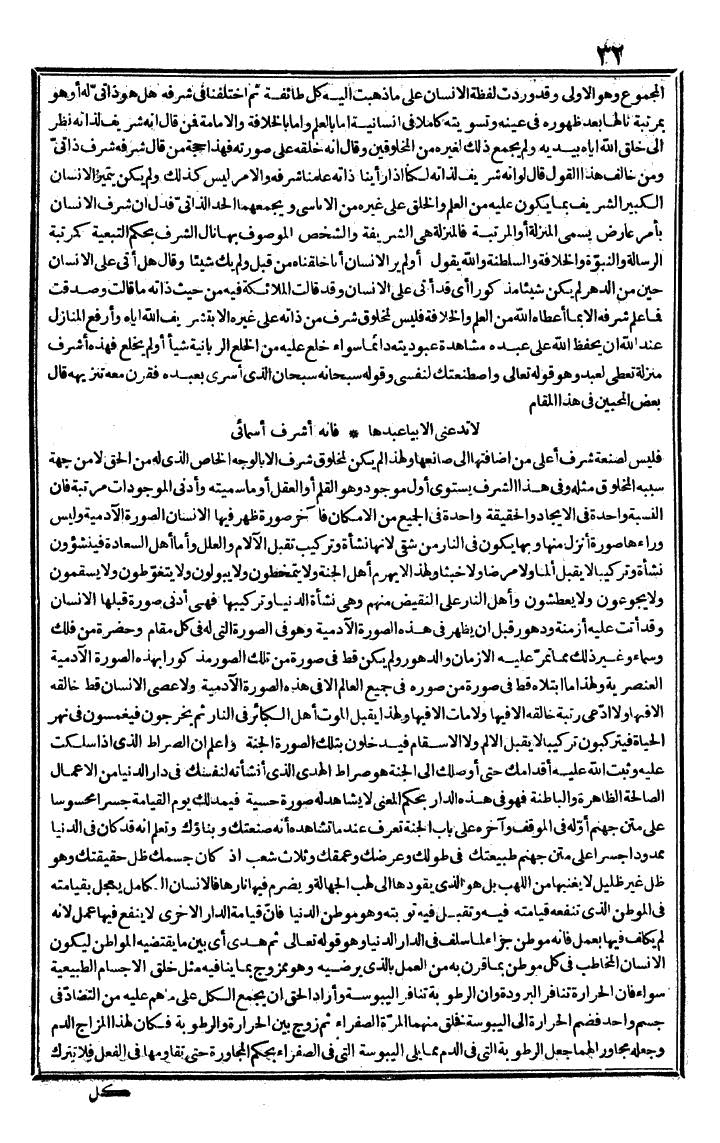 ٣٢
المجموع وهو الاولى وقد وردت لفظة الانسان على ما ذهبت اليه كل طائفة ثم اختلفنا فى شرفه هل هو ذاتى له أو هو
بمرتبة نالها بعد ظهوره فى عينه وتسويته كاملا فى انسانية اما بالعلم واما بالخلافة والامامة فمن قال انه شريف لذاته نظر
الى خلق الله اياه بيديه ولم يجمع ذلك لغيره من المخلوقين وقال انه خلقه على صورته فهذا حجة من قال شرفه شرف ذاتى
ومن خالف هذا القول قال لو انه شريف لذاته لكنا اذا رأينا ذاته علمنا شرفه والامر ليس كذلك ولم يكن يتميز الانسان
الكبير الشريف بما يكون عليه من العلم والخلق على غيره من الاناسى ويجمعهما الحد الذاتى فدل ان شرف الانسان
بأمر عارض يسمى المنزلة أو المرتبة فالمنزلة هى الشريفة والشخص الموصوف بها نال الشرف بحكم التبعية كمرتبة
الرسالة والنبوّة والخلافة والسلطنة والله يقول أولم ير الانسان أنا خلقناه من قبل ولم يك شيئا وقال هل أتى على الانسان
حين من الدهر لم يكن شيئا مذكورا أى قد أتى على الانسان وقد قالت الملائكة فيه من حيث ذاته ما قالت وصدقت
فاعلم شرفه الا بما أعطاه الله من العلم والخلافة فليس لمخلوق شرف من ذاته على غيره الا بتشريف الله اياه وأرفع المنازل
عند الله ان يحفظ الله على عبده مشاهدة عبوديته دائما سواء خلع عليه من الخلع الربانية شيأ أولم يخلع فهذه أشرف
منزلة تعطى لعبد وهو قوله تعالى واصطنعتك لنفسى وقوله سبحانه سبحان الذى أسرى بعبده فقرن معه تنزيهه قال
بعض المحبين فى هذا المقام
لا تدعنى الا بيا عبدها * فانه أشرف أسمائى
فليس لصنعة شرف أعلى من اضافتها الى صانعها ولهذا لم يكن لمخلوق شرف الا بالوجه الخاص الذى له من الحق لا من جهة
سببه المخلوق مثله وفى هذا الشرف يستوى أول موجود وهو القلم أو العقل أو ما سميته وأدنى الموجودات مرتبة فان
النسبة واحدة فى الايجاد والحقيقة واحدة فى الجميع من الامكان فآخر صورة ظهر فيها الانسان الصورة الآدمية وليس
وراءها صورة أنزل منها وبها يكون فى النار من شقى لانها نشأة وتركيب تقبل الآلام والعلل وأما أهل السعادة فينشؤن
نشأة وتركيبا لا يقبل ألما ولا مرضا ولا خبثا ولهذا لا يهرم أهل الجنة ولا يتمخطون ولا يبولون ولا يتغوّطون ولا يسقمون
ولا يجوعون ولا يعطشون وأهل النار على النقيض منهم وهى نشأة الدنيا وتركيبها فهى أدنى صورة قبلها الانسان
وقد أتت عليه أزمنة ودهور قبل ان يظهر فى هذه الصورة الآدمية وهو فى الصورة التى له فى كل مقام وحضرة من فلك
وسماء وغير ذلك مما تمرّ عليه الازمان والدهور ولم يكن قط فى صورة من تلك الصور مذكورا بهذه الصورة الآدمية
العنصرية ولهذا ما ابتلاه قط فى صورة من صوره فى جميع العالم الا فى هذه الصورة الآدمية ولا عصى الانسان قط خالقه
الا فيها ولا ادّعى رتبة خالقه الا فيها ولا مات الا فيها ولهذا يقبل الموت أهل الكبائر فى النار ثم يخرجون فيغمسون فى نهر
الحياة فيتركبون تركيبا لا يقبل الالم ولا الاسقام فيدخلون بتلك الصورة الجنة واعلم ان الصراط الذى اذا سلكت
عليه وثبت الله عليه أقدامك حتى أوصلك الى الجنة هو صراط الهدى الذى أنشأته لنفسك فى دار الدنيا من الاعمال
الصالحة الظاهرة والباطنة فهو فى هذه الدار بحكم المعنى لا يشاهد له صورة حسية فيمد لك يوم القيامة جسرا محسوسا
على متن جهنم أوّله فى الموقف وآخره على باب الجنة تعرف عند ما تشاهده أنه صنعتك وبناؤك وتعلم انه قد كان فى الدنيا
ممدودا جسرا على متن جهنم طبيعتك فى طولك وعرضك وعمقك وثلاث شعب اذ كان جسمك ظل حقيقتك وهو
ظل غير ظليل لا يغنيها من اللهب بل هو الذى يقودها الى لهب الجهالة ويضرم فيها نارها فالانسان الكامل يعجل بقيامته
فى الموطن الذى تنفعه قيامته فيه وتقبل فيه توبته وهو موطن الدنيا فان قيامة الدار الاخرى لا ينفع فيها عمل لانه
لم يكلف فيها بعمل فانه موطن جزاء لما سلف فى الدار الدنيا وهو قوله تعالى ثم هدى أى بين ما يقتضيه المواطن ليكون
الانسان المخاطب فى كل موطن بما قرن به من العمل بالذى يرضيه وهو ممزوج بما ينافيه مثل خلق الاجسام الطبيعية
سواء فان الحرارة تنافر البرودة وان الرطوبة تنافر اليبوسة وأراد الحق ان يجمع الكل على ما هم عليه من التضادّ فى
جسم واحد فضم الحرارة الى اليبوسة فخلق منهما المرّة الصفراء ثم زوج بين الحرارة والرطوبة فكان لهذا المزاج الدم
وجعله مجاورا لهما جعل الرطوبة التى فى الدم مما يلى اليبوسة التى فى الصفراء بحكم المجاورة حتى تقاومها فى الفعل فلا تترك
كل